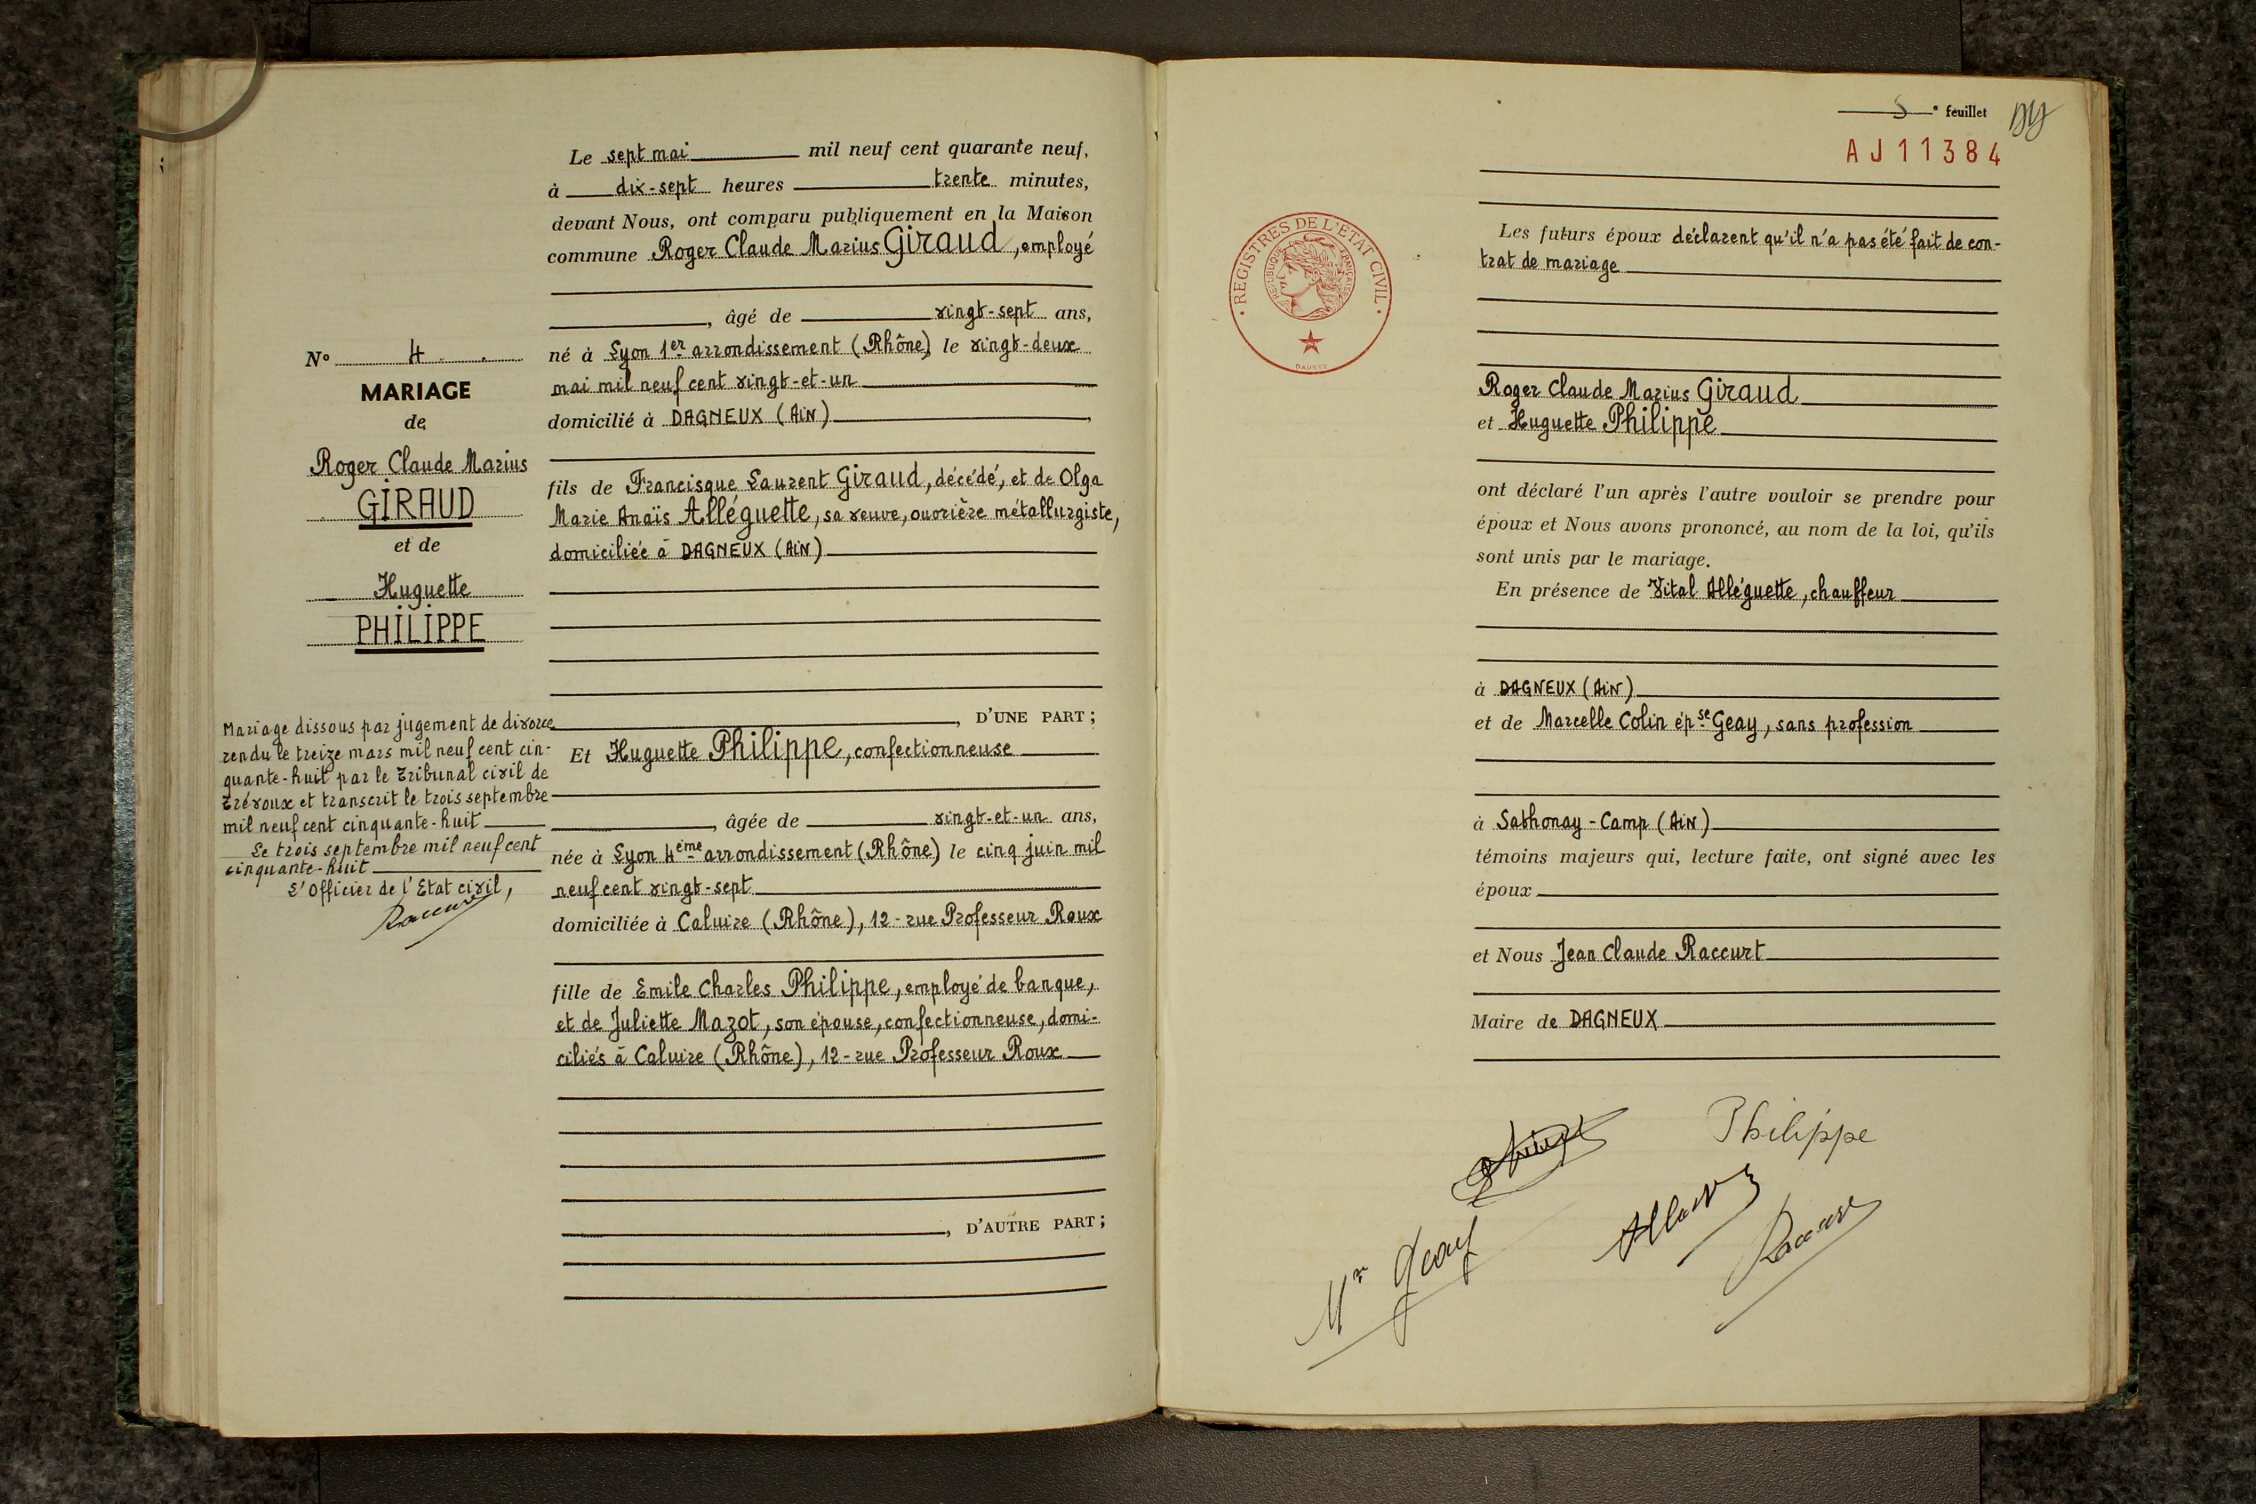 Le sept mai mil neuf cent quarante neuf,
à dix-sept heures trente minutes,
devant Nous, ont comparu publiquement en la Maison
commune Roger Claude Marius Giraud, employé
, âgé de vingt-sept ans,
né à Lyon 1er arrondissement (Rhône) le vingt-deux
mai mil neuf cent vingt-et-un
domicilié à DAGNEUX (AiN)
fils de Francisque Laurent Giraud, décédé, et de Olga
Marie Anaïs Alléguette, sa veuve, ouvrière métallurgiste,
domiciliée à DAGNEUX (AiN)
, D'UNE PART ;
Et Huguette Philippe, confectionneuse
, âgée de vingt-et-un ans,
née à Lyon 4ème arrondissement (Rhône) le cinq juin mil
neuf cent vingt-sept
domiciliée à Caluire (Rhône), 12 - rue Professeur Roux
fille de Emile Charles Philippe, employé de banque,
et de Juliette Mazot, son épouse, confectionneuse, domi-
ciliés à Caluire (Rhône), 12 - rue Professeur Roux
, D'AUTRE PART ;
N° 4
MARIAGE
de
Roger Claude Marius
GIRAUD
et de
Huguette
PHILIPPE
Mariage dissous par jugement de divorce
rendu le treize mars mil neuf cent cin-
quante-huit par le Tribunal civil de
Trévoux et transcrit le trois septembre
mil neuf cent cinquante-huit
Le trois septembre mil neuf cent
cinquante-huit
L'Officier de l'Etat civil,
Raccurt
5e feuillet
AJ11384
REGISTRES DE L'ETAT CIVIL
REPUBLIQUE FRANÇAISE
Les futurs époux déclarent qu'il n'a pas été fait de con-
trat de mariage
Roger Claude Marius Giraud
et Huguette Philippe
ont déclaré l'un après l'autre vouloir se prendre pour
époux et Nous avons prononcé, au nom de la loi, qu'ils
sont unis par le mariage.
En présence de Vital Alléguette, chauffeur
à DAGNEUX (AiN)
et de Marcelle Colin épse Geay, sans profession
à Sathonay - Camp (AiN)
témoins majeurs qui, lecture faite, ont signé avec les
époux
et Nous Jean Claude Raccurt
Maire de DAGNEUX
Philippe
Geay
Raccurt